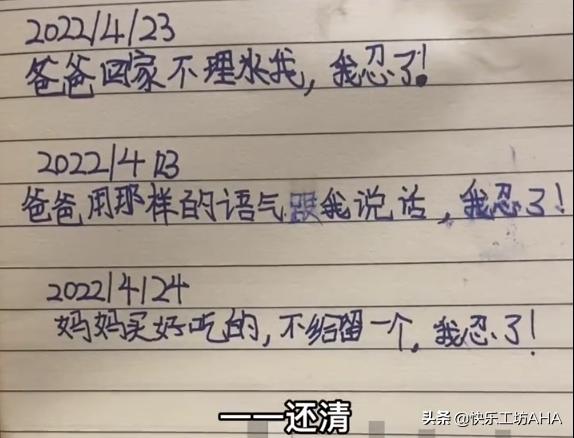 2022/4/23
爸爸回家不理睬我，我忍了！
2022/4/23
爸爸用那样的语气跟我说话，我忍了！
2022/4/24
妈妈买好吃的，不给留一个，我忍了！
一一还清
头条 @快乐工坊AHA